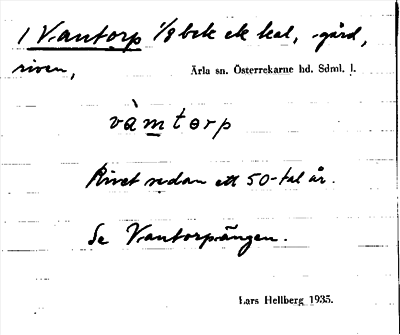 1 Vantorp 1/8 bek ek kal, gård,
riven, Ärla sn. Österrekarne hd. Sdml. l.
vàmtorp
Rivet sedan ett 50-tal år.
Se Vantorpängen.
Lars Hellberg 1935.